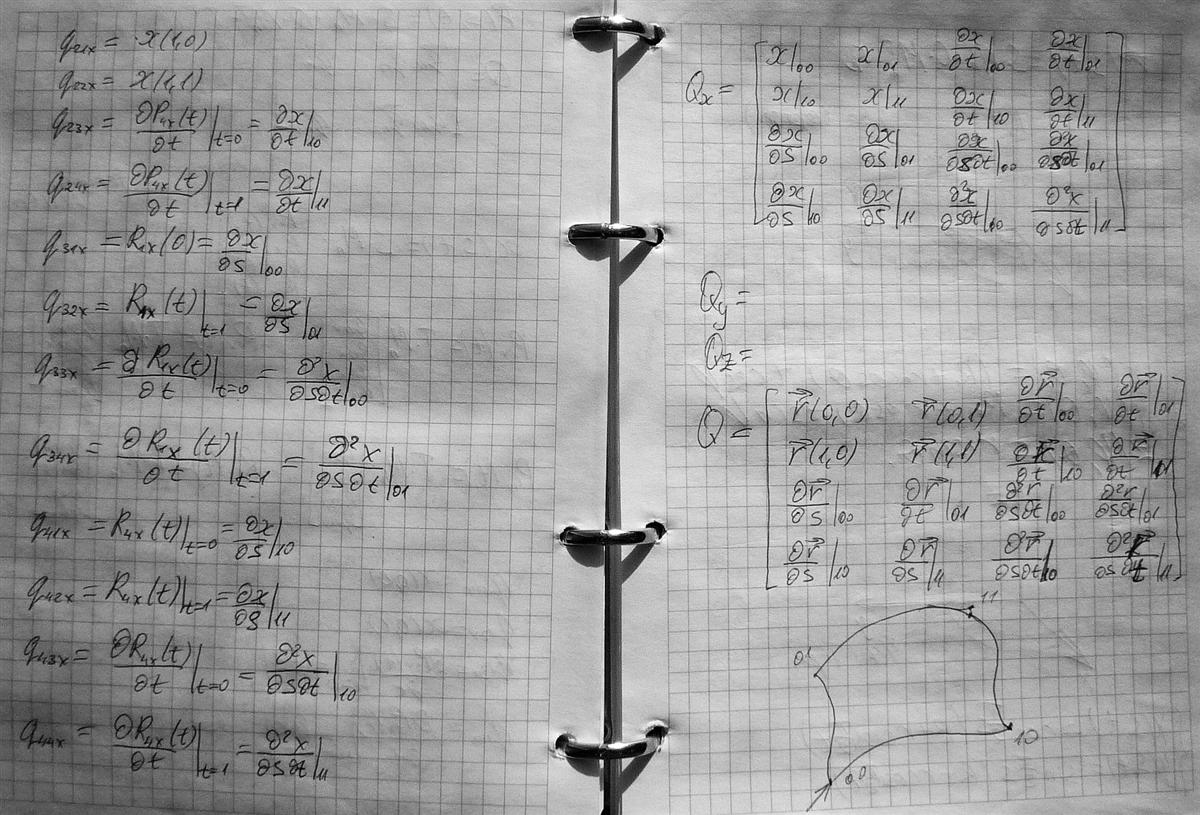 q₂₁ₓ = x(1,0)
q₂₂ₓ = x(1,1)
q₂₃ₓ = ∂P₄ₓ(t)/∂t |t=0 = ∂x/∂t |10
q₂₄ₓ = ∂P₄ₓ(t)/∂t |t=1 = ∂x/∂t |11
q₃₁ₓ = R₁ₓ(0) = ∂x/∂s |00
q₃₂ₓ = R₁ₓ(t) |t=1 = ∂x/∂s |01
q₃₃ₓ = ∂R₁ₓ(t)/∂t |t=0 = ∂²x/∂s∂t |00
q₃₄ₓ = ∂R₁ₓ(t)/∂t |t=1 = ∂²x/∂s∂t |01
q₄₁ₓ = R₄ₓ(t) |t=0 = ∂x/∂s |10
q₄₂ₓ = R₄ₓ(t) |t=1 = ∂x/∂s |11
q₄₃ₓ = ∂R₄ₓ(t)/∂t |t=0 = ∂²x/∂s∂t |10
q₄₄ₓ = ∂R₄ₓ(t)/∂t |t=1 = ∂²x/∂s∂t |11
x|00 x|01 ∂x/∂t|00 ∂x/∂t|01
Qₓ = x|10 x|11 ∂x/∂t|10 ∂x/∂t|11
∂x/∂s|00 ∂x/∂s|01 ∂²x/∂s∂t|00 ∂²x/∂s∂t|01
∂x/∂s|10 ∂x/∂s|11 ∂²x/∂s∂t|00 ∂²x/∂s∂t|11
Qy =
Qz =
r⃗(0,0) r⃗(0,1) ∂r⃗/∂t|00 ∂r⃗/∂t|01
Q = r⃗(1,0) r⃗(1,1) ∂r⃗/∂t|10 ∂r⃗/∂t|11
∂r⃗/∂s|00 ∂r⃗/∂t|01 ∂²r⃗/∂s∂t|00 ∂²r/∂s∂t|01
∂r⃗/∂s|10 ∂r⃗/∂s|11 ∂²r⃗/∂s∂t|10 ∂²r⃗/∂s∂t|11
11
01
10
00